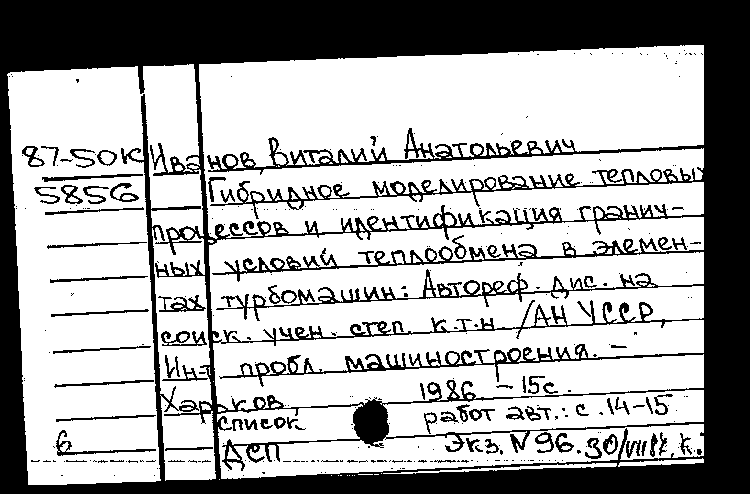 87-50К Иванов, Виталий Анатольевич
5856 Гибридное моделирование тепловых
процессов и идентификация гранич-
ных условий теплообмена в элемен-
тах турбомашин: Автореф. дис. на
соиск. учен. степ. к.т.н. /АН УССР,
Ин-т пробл. машиностроения. –
Харьков, 1986 – 15с.
список работ авт.: с. 14-15
6 ДСП Экз. N 96. 30/VIII